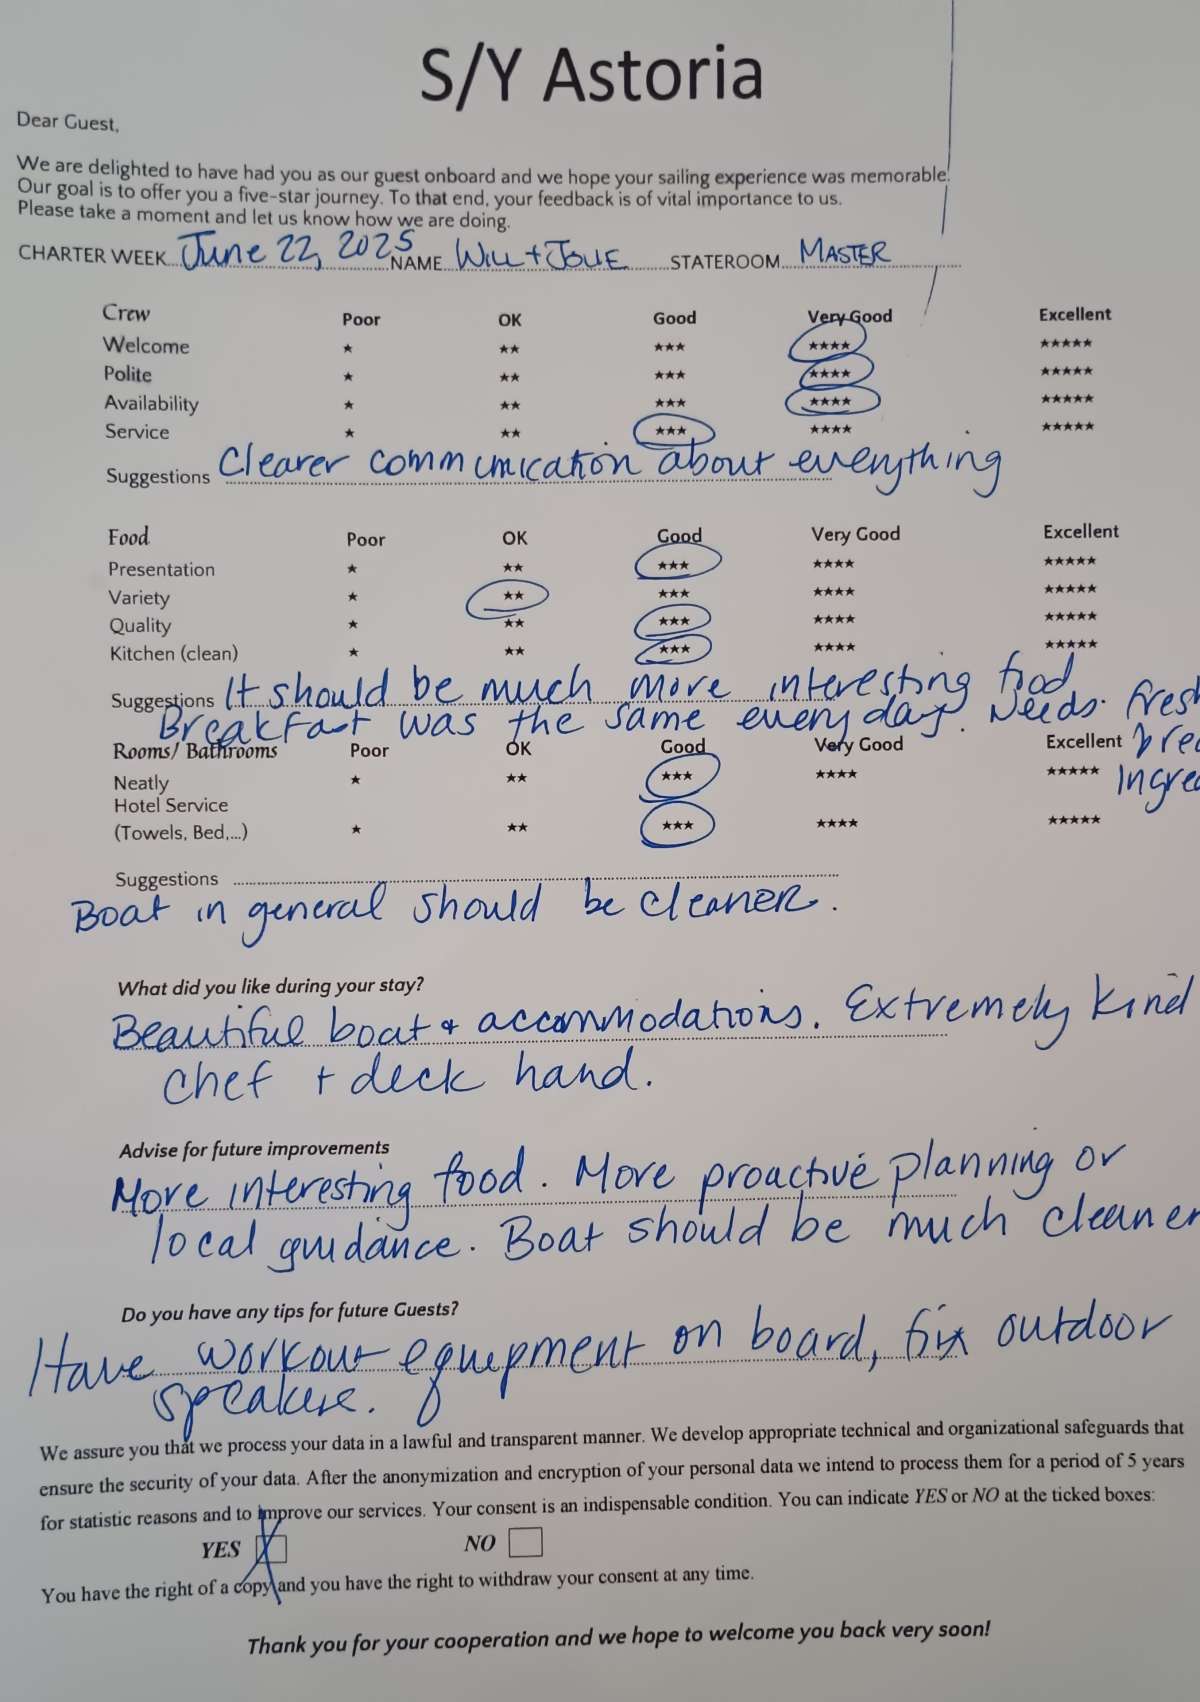 S/Y Astoria
Dear Guest,
We are delighted to have had you as our guest onboard and we hope your sailing experience was memorable!
Our goal is to offer you a five-star journey. To that end, your feedback is of vital importance to us.
Please take a moment and let us know how we are doing.
CHARTER WEEK June 22, 2025 NAME WILL + JOLIE STATEROOM MASTER
Crew Poor OK Good Very Good Excellent
Welcome ★ ★★ ★★★ ★★★★ ★★★★★
Polite ★ ★★ ★★★ ★★★★ ★★★★★
Availability ★ ★★ ★★★ ★★★★ ★★★★★
Service ★ ★★ ★★★ ★★★★ ★★★★★
Suggestions Clearer communication about everything
Food Poor OK Good Very Good Excellent
Presentation ★ ★★ ★★★ ★★★★ ★★★★★
Variety ★ ★★ ★★★ ★★★★ ★★★★★
Quality ★ ★★ ★★★ ★★★★ ★★★★★
Kitchen (clean) ★ ★★ ★★★ ★★★★ ★★★★★
Suggestions It should be much more interesting food
Breakfast was the same every day. Needs fresh
Rooms/ Bathrooms Poor OK Good Very Good Excellent
Neatly ★ ★★ ★★★ ★★★★ ★★★★★
Hotel Service
(Towels, Bed,...) ★ ★★ ★★★ ★★★★ ★★★★★
Suggestions
Boat in general should be cleaner.
What did you like during your stay?
Beautiful boat + accommodations. Extremely kind
chef + deck hand.
Advise for future improvements
More interesting food. More proactive planning or
local guidance. Boat should be much cleaner
Do you have any tips for future Guests?
Have workout equipment on board, fix outdoor
speakers.
We assure you that we process your data in a lawful and transparent manner. We develop appropriate technical and organizational safeguards that
ensure the security of your data. After the anonymization and encryption of your personal data we intend to process them for a period of 5 years
for statistic reasons and to improve our services. Your consent is an indispensable condition. You can indicate YES or NO at the ticked boxes:
YES NO
You have the right of a copy and you have the right to withdraw your consent at any time.
Thank you for your cooperation and we hope to welcome you back very soon!